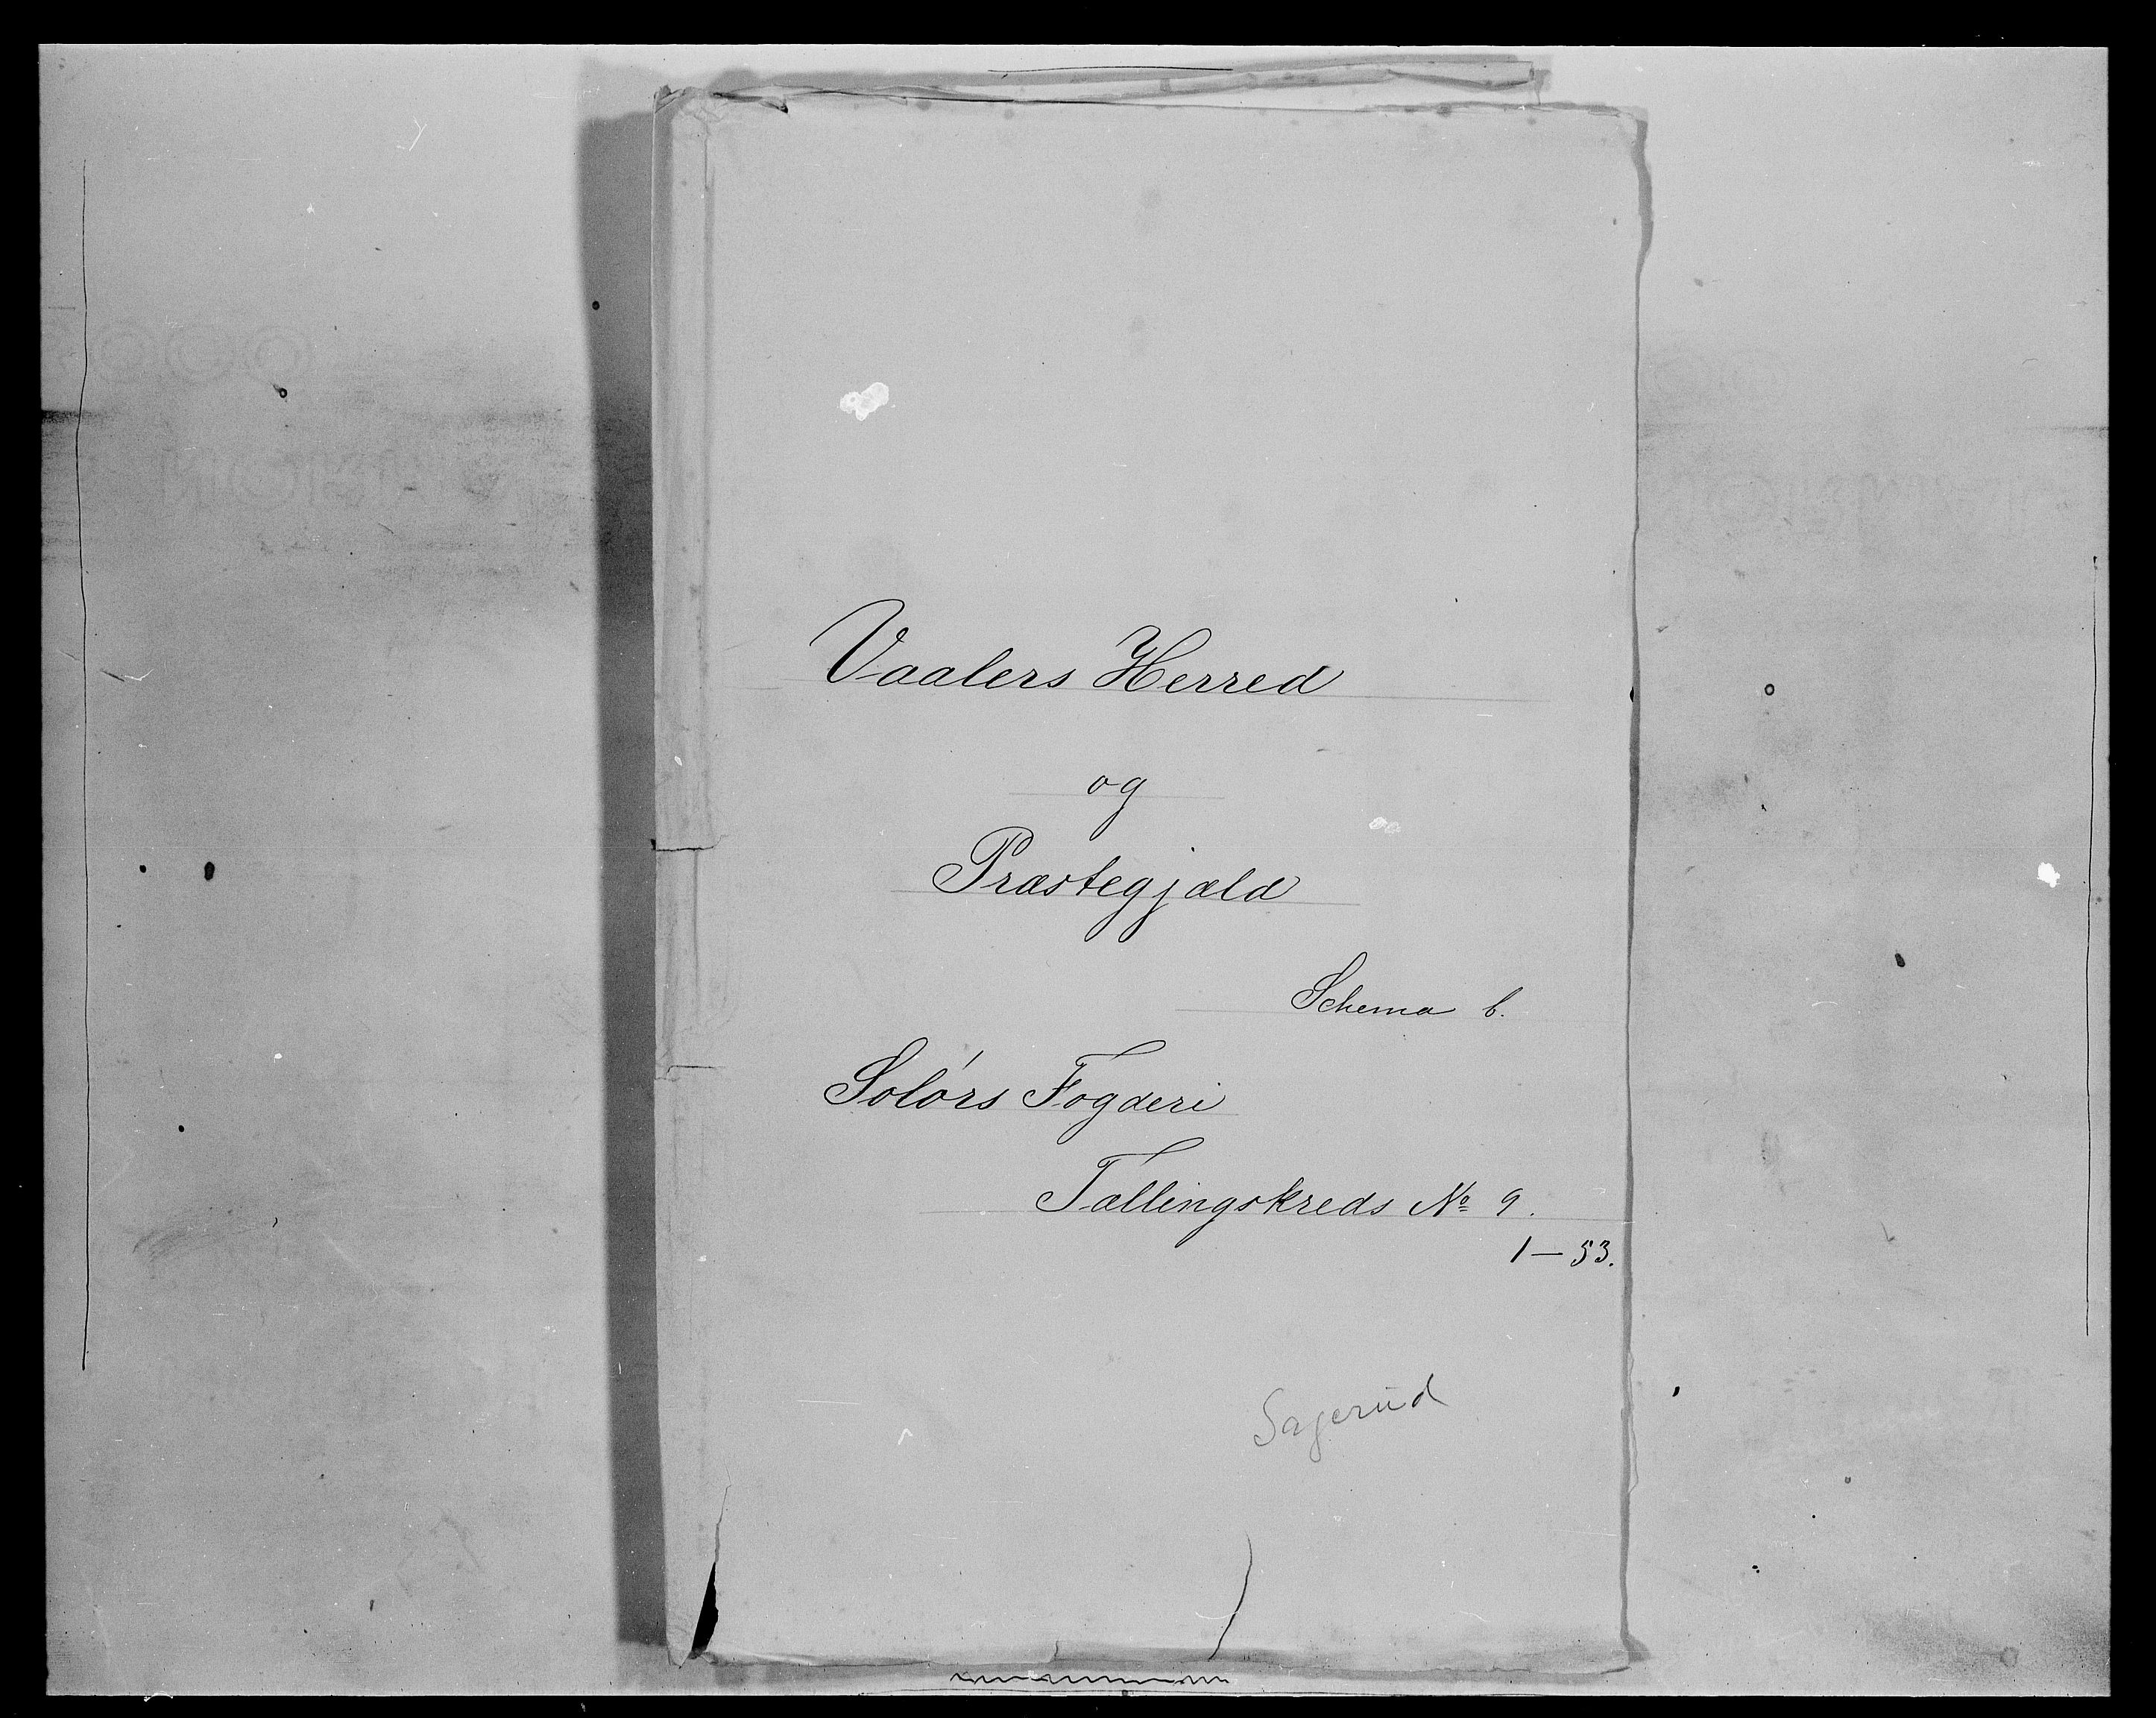 Vaalers Herred
og
Præstegjæld
Schema b.
Solørs Fogderi
Tællingskreds No 9.
1 — 53.
Sagerud